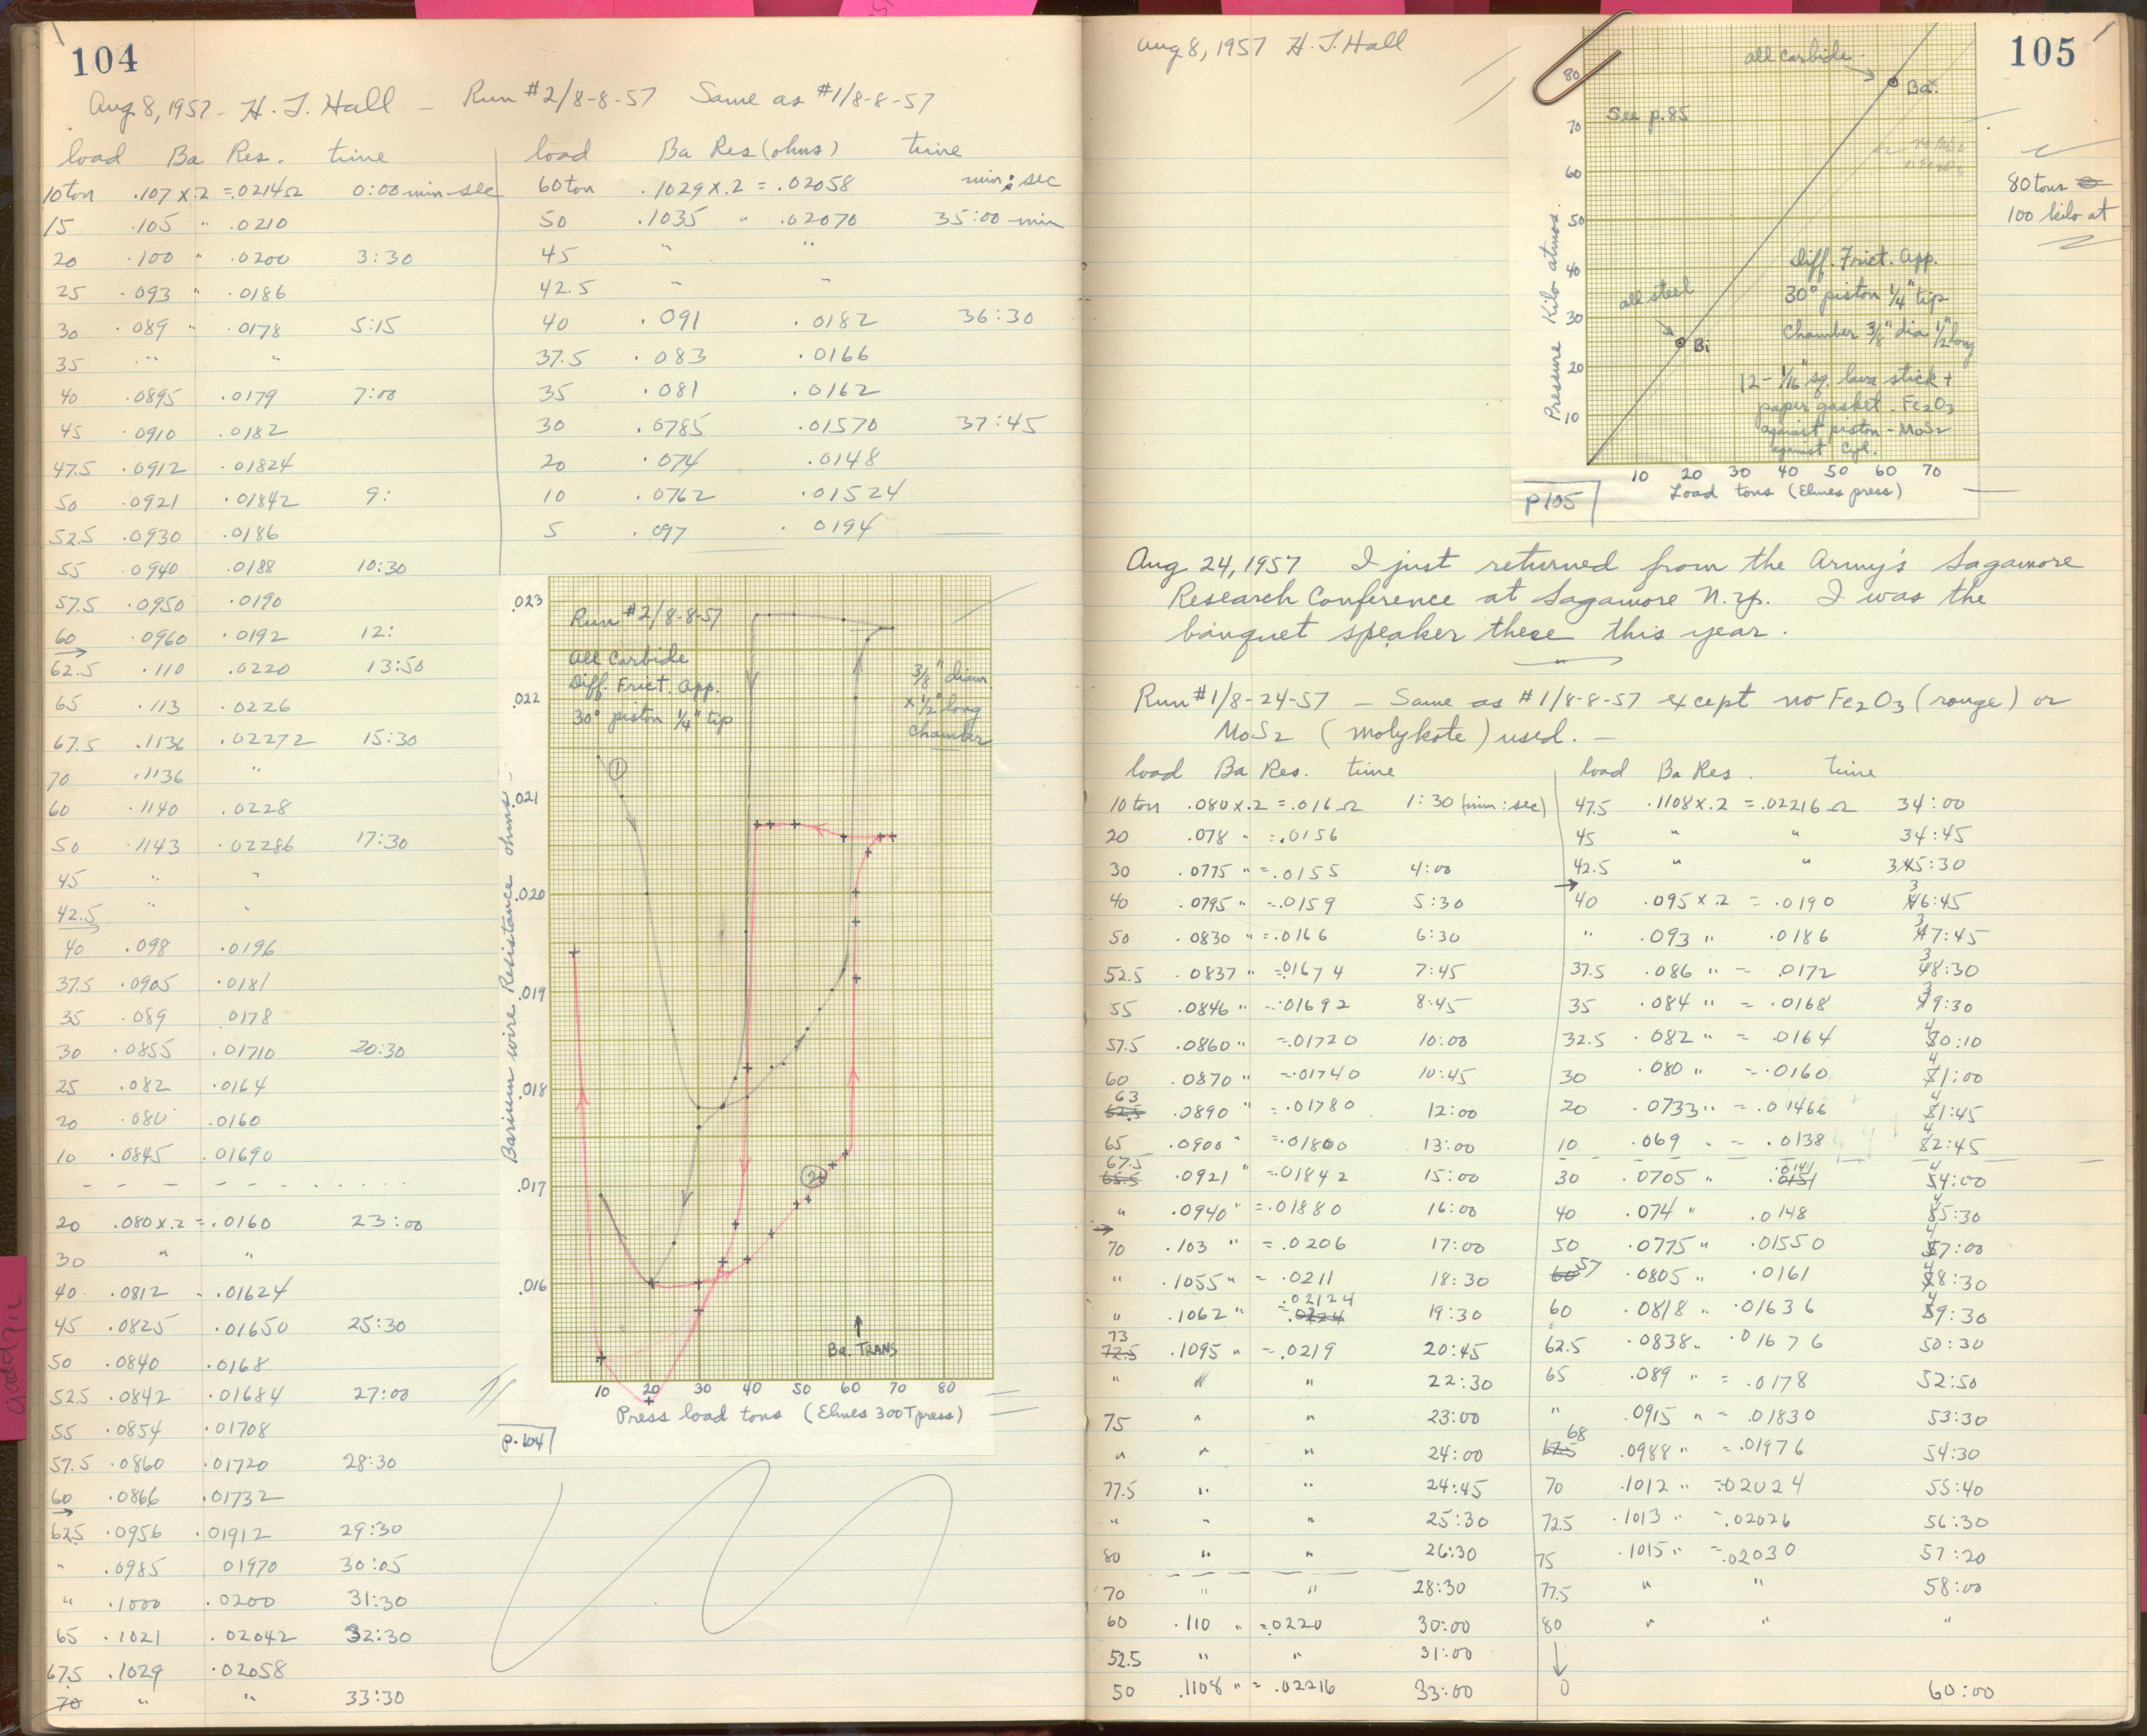 104
Aug 8, 1957 - H. T. Hall - Run #2/8-8-57 Same as #1/8-8-57
load Ba Res. time
10 ton .107 x .2 = .0214 Ω 0:00 min-sec
15 .105 " .0210
20 .100 " .0200 3:30
25 .093 " .0186
30 .089 " .0178 5:15
35 " "
40 .0895 .0179 7:00
45 .0910 .0182
47.5 .0912 .01824
50 .0921 .01842 9:
52.5 .0930 .0186
55 .0940 .0188 10:30
57.5 .0950 .0190
60 .0960 .0192 12:
→
62.5 .110 .0220 13:50
65 .113 .0226
67.5 .1136 .02272 15:30
70 .1136 "
60 .1140 .0228
50 .1143 .02286 17:30
45 " "
42.5 " "
→
40 .098 .0196
37.5 .0905 .0181
35 .089 .0178
30 .0855 .01710 20:30
25 .082 .0164
20 .080 .0160
10 .0845 .01690
20 .080 x .2 = .0160 23:00
30 " "
40 .0812 " .01624
45 .0825 .01650 25:30
50 .0840 .0168
52.5 .0842 .01684 27:00
55 .0854 .01708
57.5 .0860 .01720 28:30
60 .0866 .01732
→
62.5 .0956 .01912 29:30
" .0985 01970 30:05
" .1000 .0200 31:30
65 .1021 .02042 32:30
67.5 .1029 .02058
70 " " 33:30
load Ba Res (ohms) time
60 ton .1029 x .2 = .02058 min:sec
50 .1035 " .02070 35:00 min
45 " "
42.5 " "
40 .091 .0182 36:30
37.5 .083 .0166
35 .081 .0162
30 .0785 .01570 37:45
20 .074 .0148
10 .0762 .01524
5 .097 .0194
Run #2/8-8-57
All Carbide
Diff. Frict. App.
30° piston 1/4" tip
3/8" diam
x 1/2" long
chamber
Barium wire Resistance ohms
.023
.022
.021
.020
.019
.018
.017
.016
1
2
Ba. TRANS
10 20 30 40 50 60 70 80
Press load tons (Elmes 300T press)
p. 104
105
Aug 8, 1957 H. T. Hall
all carbide
Ba
See p. 85
all steel
Bi
Diff. Frict. App.
30° piston 1/4" tip
Chamber 3/8" dia 1/2" long
12 - 1/16" sq. lava stick +
paper gasket. Fe2O3
against piston - MoS2
against Cyl.
Pressure Kilo atmos.
80
70
60
50
40
30
20
10
10 20 30 40 50 60 70
Load tons (Elmes press)
p 105
80 tons
100 kilo at
Aug 24, 1957 I just returned from the Army's Sagamore
Research Conference at Sagamore N.Y. I was the
banquet speaker there this year.
Run #1/8-24-57 - Same as #1/8-8-57 except no Fe2O3 (rouge) or
MoS2 (molykote) used. -
load Ba Res. time
10 ton .080 x .2 = .016 Ω 1:30 (min:sec)
20 .078 " = .0156
30 .0775 " = .0155 4:00
40 .0795 " = .0159 5:30
50 .0830 " = .0166 6:30
52.5 .0837 " = .01674 7:45
55 .0846 " = .01692 8:45
57.5 .0860 " = .01720 10:00
60 .0870 " = .01740 10:45
63 62.5 .0890 " = .01780 12:00
65 .0900 " = .01800 13:00
67.5 65.5 .0921 " = .01842 15:00
" .0940 " = .01880 16:00
→
70 .103 " = .0206 17:00
" .1055 " = .0211 18:30
" .1062 " = .02124 .0224 19:30
73 72.5 .1095 " = .0219 20:45
" " " 22:30
75 " " 23:00
" " " 24:00
77.5 " " 24:45
" " " 25:30
80 " " 26:30
70 " " 28:30
60 .110 " = .0220 30:00
52.5 " " 31:00
50 .1108 " = .02216 33:00
load Ba Res. time
47.5 .1108 x .2 = .02216 Ω 34:00
45 " " 34:45
42.5 " " 35:30
→
40 .095 x .2 = .0190 36:45
" .093 " .0186 37:45
37.5 .086 " = .0172 38:30
35 .084 " = .0168 39:30
32.5 .082 " = .0164 40:10
30 .080 " = .0160 41:00
20 .0733 " = .01466 41:45
10 .069 " = .0138 42:45
30 .0705 " .0141 .0151 44:00
40 .074 " .0148 45:30
50 .0775 " .01550 47:00
60 57 .0805 " .0161 48:30
60 .0818 " .01636 49:30
62.5 .0838 " .01676 50:30
65 .089 " = .0178 52:50
" .0915 " = .01830 53:30
68 67.5 .0988 " = .01976 54:30
70 .1012 " = .02024 55:40
72.5 .1013 " = .02026 56:30
75 .1015 " = .02030 57:20
77.5 " " 58:00
80 " " "
↓
0 60:00